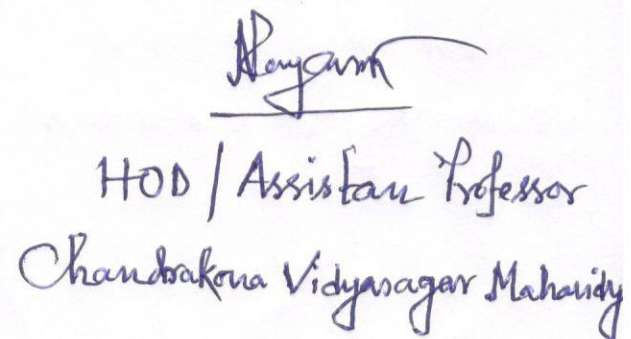 HOD / Assistan Professor
Chandrakona Vidyasagar Mahavidy